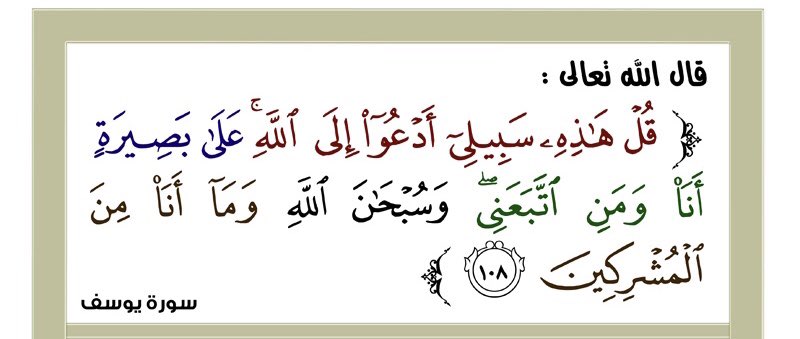 قال الله تعالى :
﴿ قُلْ هَٰذِهِۦ سَبِيلِيٓ أَدْعُوٓا۟ إِلَى ٱللَّهِ ۚ عَلَىٰ بَصِيرَةٍ
أَنَا۠ وَمَنِ ٱتَّبَعَنِي ۖ وَسُبْحَٰنَ ٱللَّهِ وَمَآ أَنَا۠ مِنَ
ٱلْمُشْرِكِينَ ١٠٨ ﴾
سورة يوسف